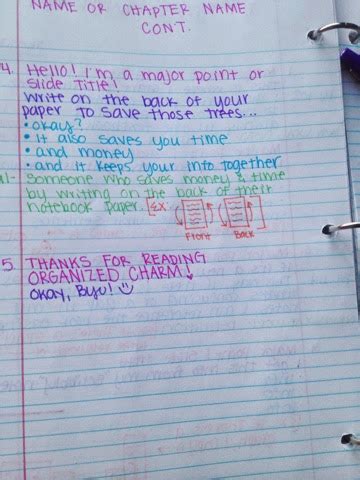 NAME OR CHAPTER NAME
CONT.
4. Hello! I'm a major point or
slide title!
write on the back of your
paper to save those trees...
• okay?
• it also saves you time
• and money
• and it keeps your info together
Someone who saves money & time
by writing on the back of their
notebook paper. [EX
Front Back
5. THANKS FOR READING
ORGANIZED CHARM!
Okay, Bye!